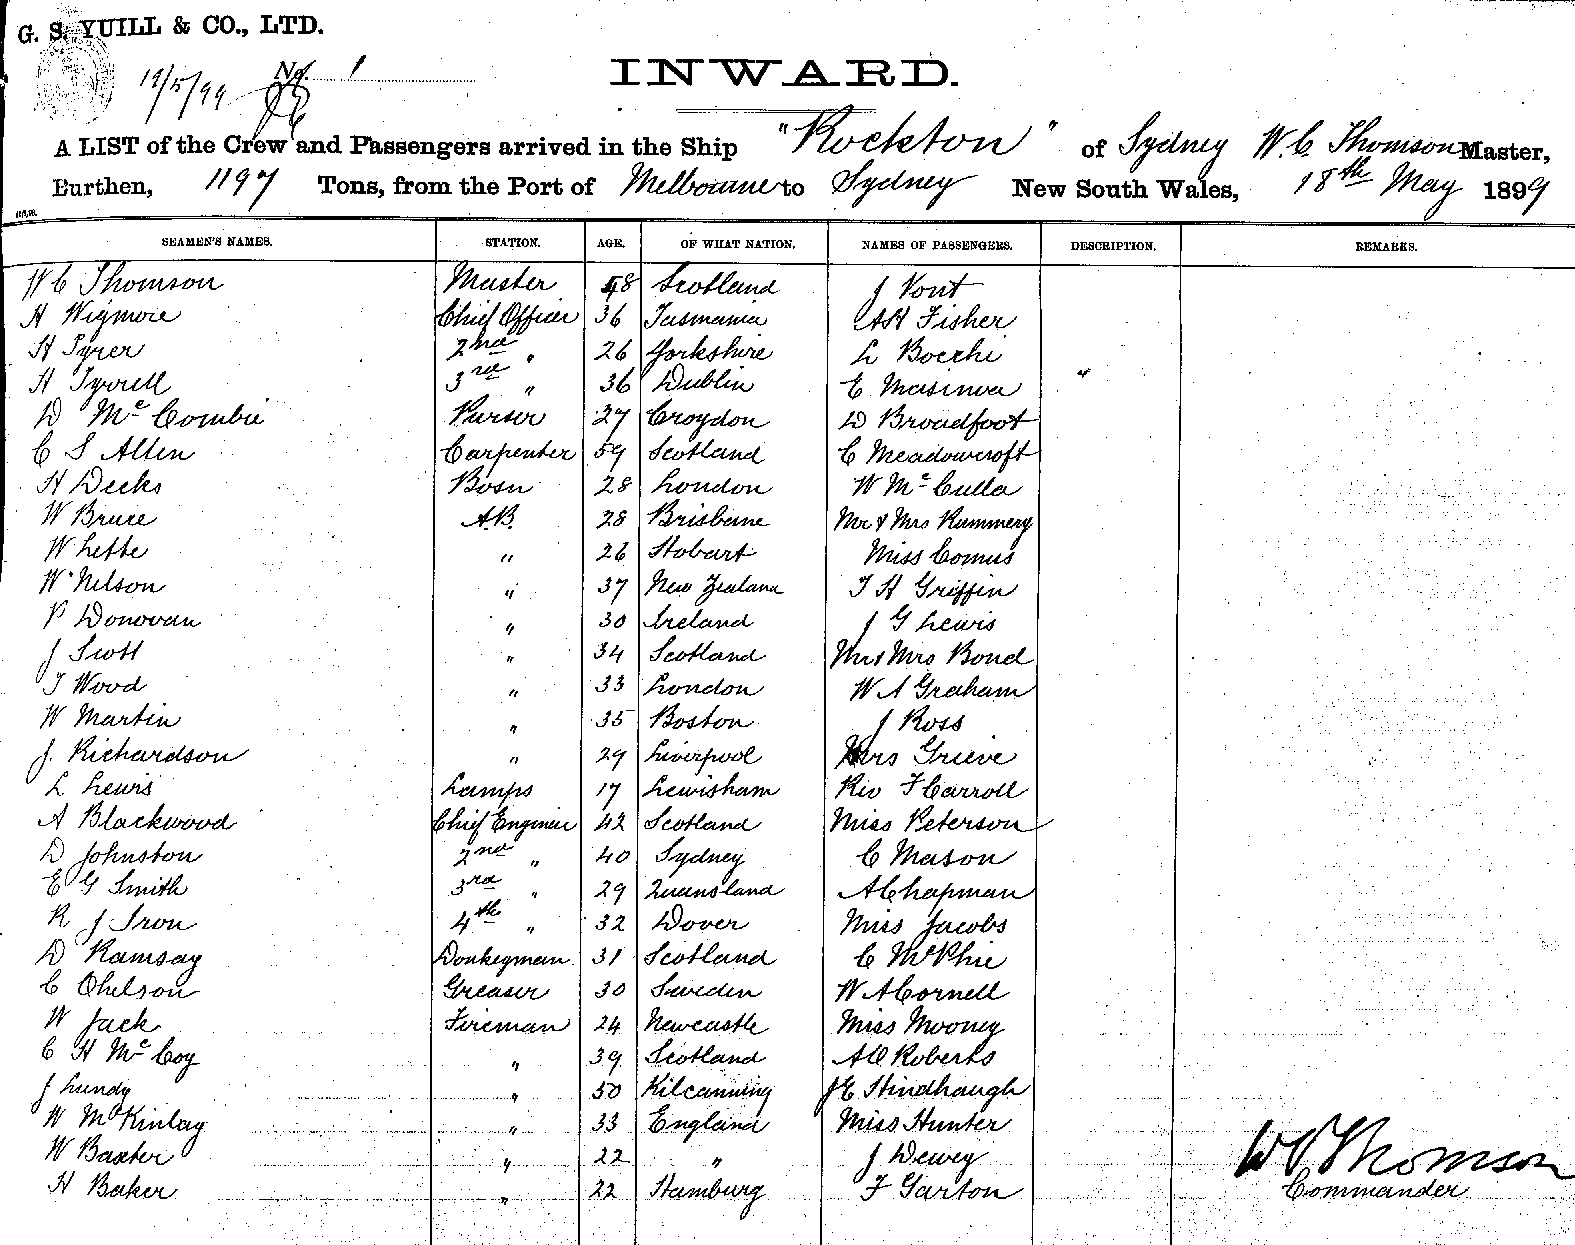 G. S. YUILL & CO., LTD.
19/5/99 No. 1
INWARD.
A LIST of the Crew and Passengers arrived in the Ship "Rockton" of Sydney W. C. Thomson Master,
Burthen, 1197 Tons, from the Port of Melbourne to Sydney New South Wales, 18th May 1899
SEAMEN'S NAMES. STATION. AGE. OF WHAT NATION. NAMES OF PASSENGERS. DESCRIPTION. REMARKS.
W C Thomson Master 48 Scotland J Vont
H Wigmore Chief Officer 36 Tasmania A H Fisher
H Tyrer 2nd " 26 Yorkshire L Bocchi
H Tyrrell 3rd " 36 Dublin E
D McCombie Purser 27 Croydon D Broadfoot
C S Allen Carpenter 59 Scotland C Meadowcroft
H Deeks Bosn 28 London W McCulla
W Bruce A.B. 28 Brisbane Mr & Mrs Rummery
W Lette " 26 Hobart Miss Comus
W Nelson " 37 New Zealand T H Griffin
P Donovan " 30 Ireland J G Lewis
J Scott " 34 Scotland Mr & Mrs Bond
T Wood " 33 London W A Graham
W Martin " 35 Boston J Ross
J. Richardson " 29 Liverpool Mrs Grieve
L Lewis Lamps 17 Lewisham Rev F Carroll
A Blackwood Chief Engineer 42 Scotland Miss Peterson
D Johnston 2nd " 40 Sydney C Mason
E G Smith 3rd " 29 Queensland A Chapman
R J Iron 4th " 32 Dover Miss Jacobs
D Ramsay Donkeyman 31 Scotland C McPhie
C Ohelson Greaser 30 Sweden W A Cornell
W Jack Fireman 24 Newcastle Miss Mooney
C H McCoy " 39 Scotland A C Roberts
J Lundy " 50 J E Hindhaugh
W McKinlay " 33 England Miss Hunter
W Baxter " 22 " J Dewey
H Baker " 22 Hamburg F Garton
W C Thomson
Commander